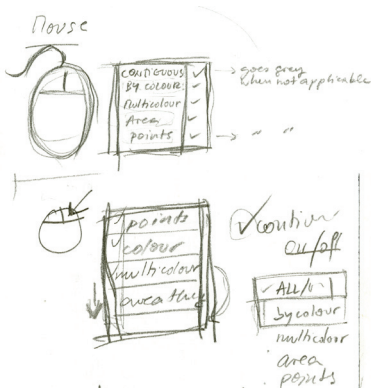 Mouse
CONTIGUOUS
BY COLOUR
Multicolour
Area
points
→ goes grey
when not applicable
→ " "
points
colour
multicolour
area
on/off
ALL
by colour
multicolour
area
points